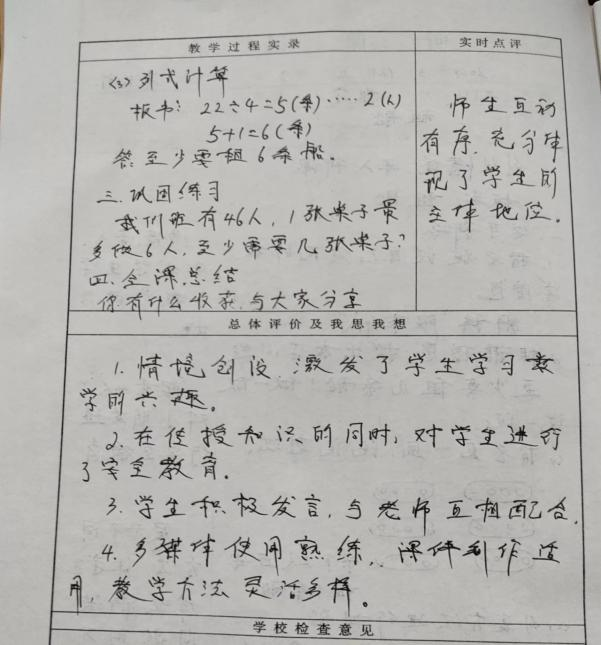 教学过程实录
实时点评
(3) 列式计算
板书: 22÷4=5(条)……2(人)
5+1=6(条)
答:至少要租6条船。
三.巩固练习
我们班有46人,1张桌子最
多做6人,至少需要几张桌子?
四.全课总结
你有什么收获,与大家分享
师生互动
有序,充分体
现了学生的
主体地位。
总体评价及我思我想
1.情境创设,激发了学生学习数
学的兴趣。
2.在传授知识的同时,对学生进行
了安全教育。
3.学生积极发言,与老师互相配合。
4.多媒体使用熟练,课件制作适
用,教学方法灵活多样。
学校检查意见